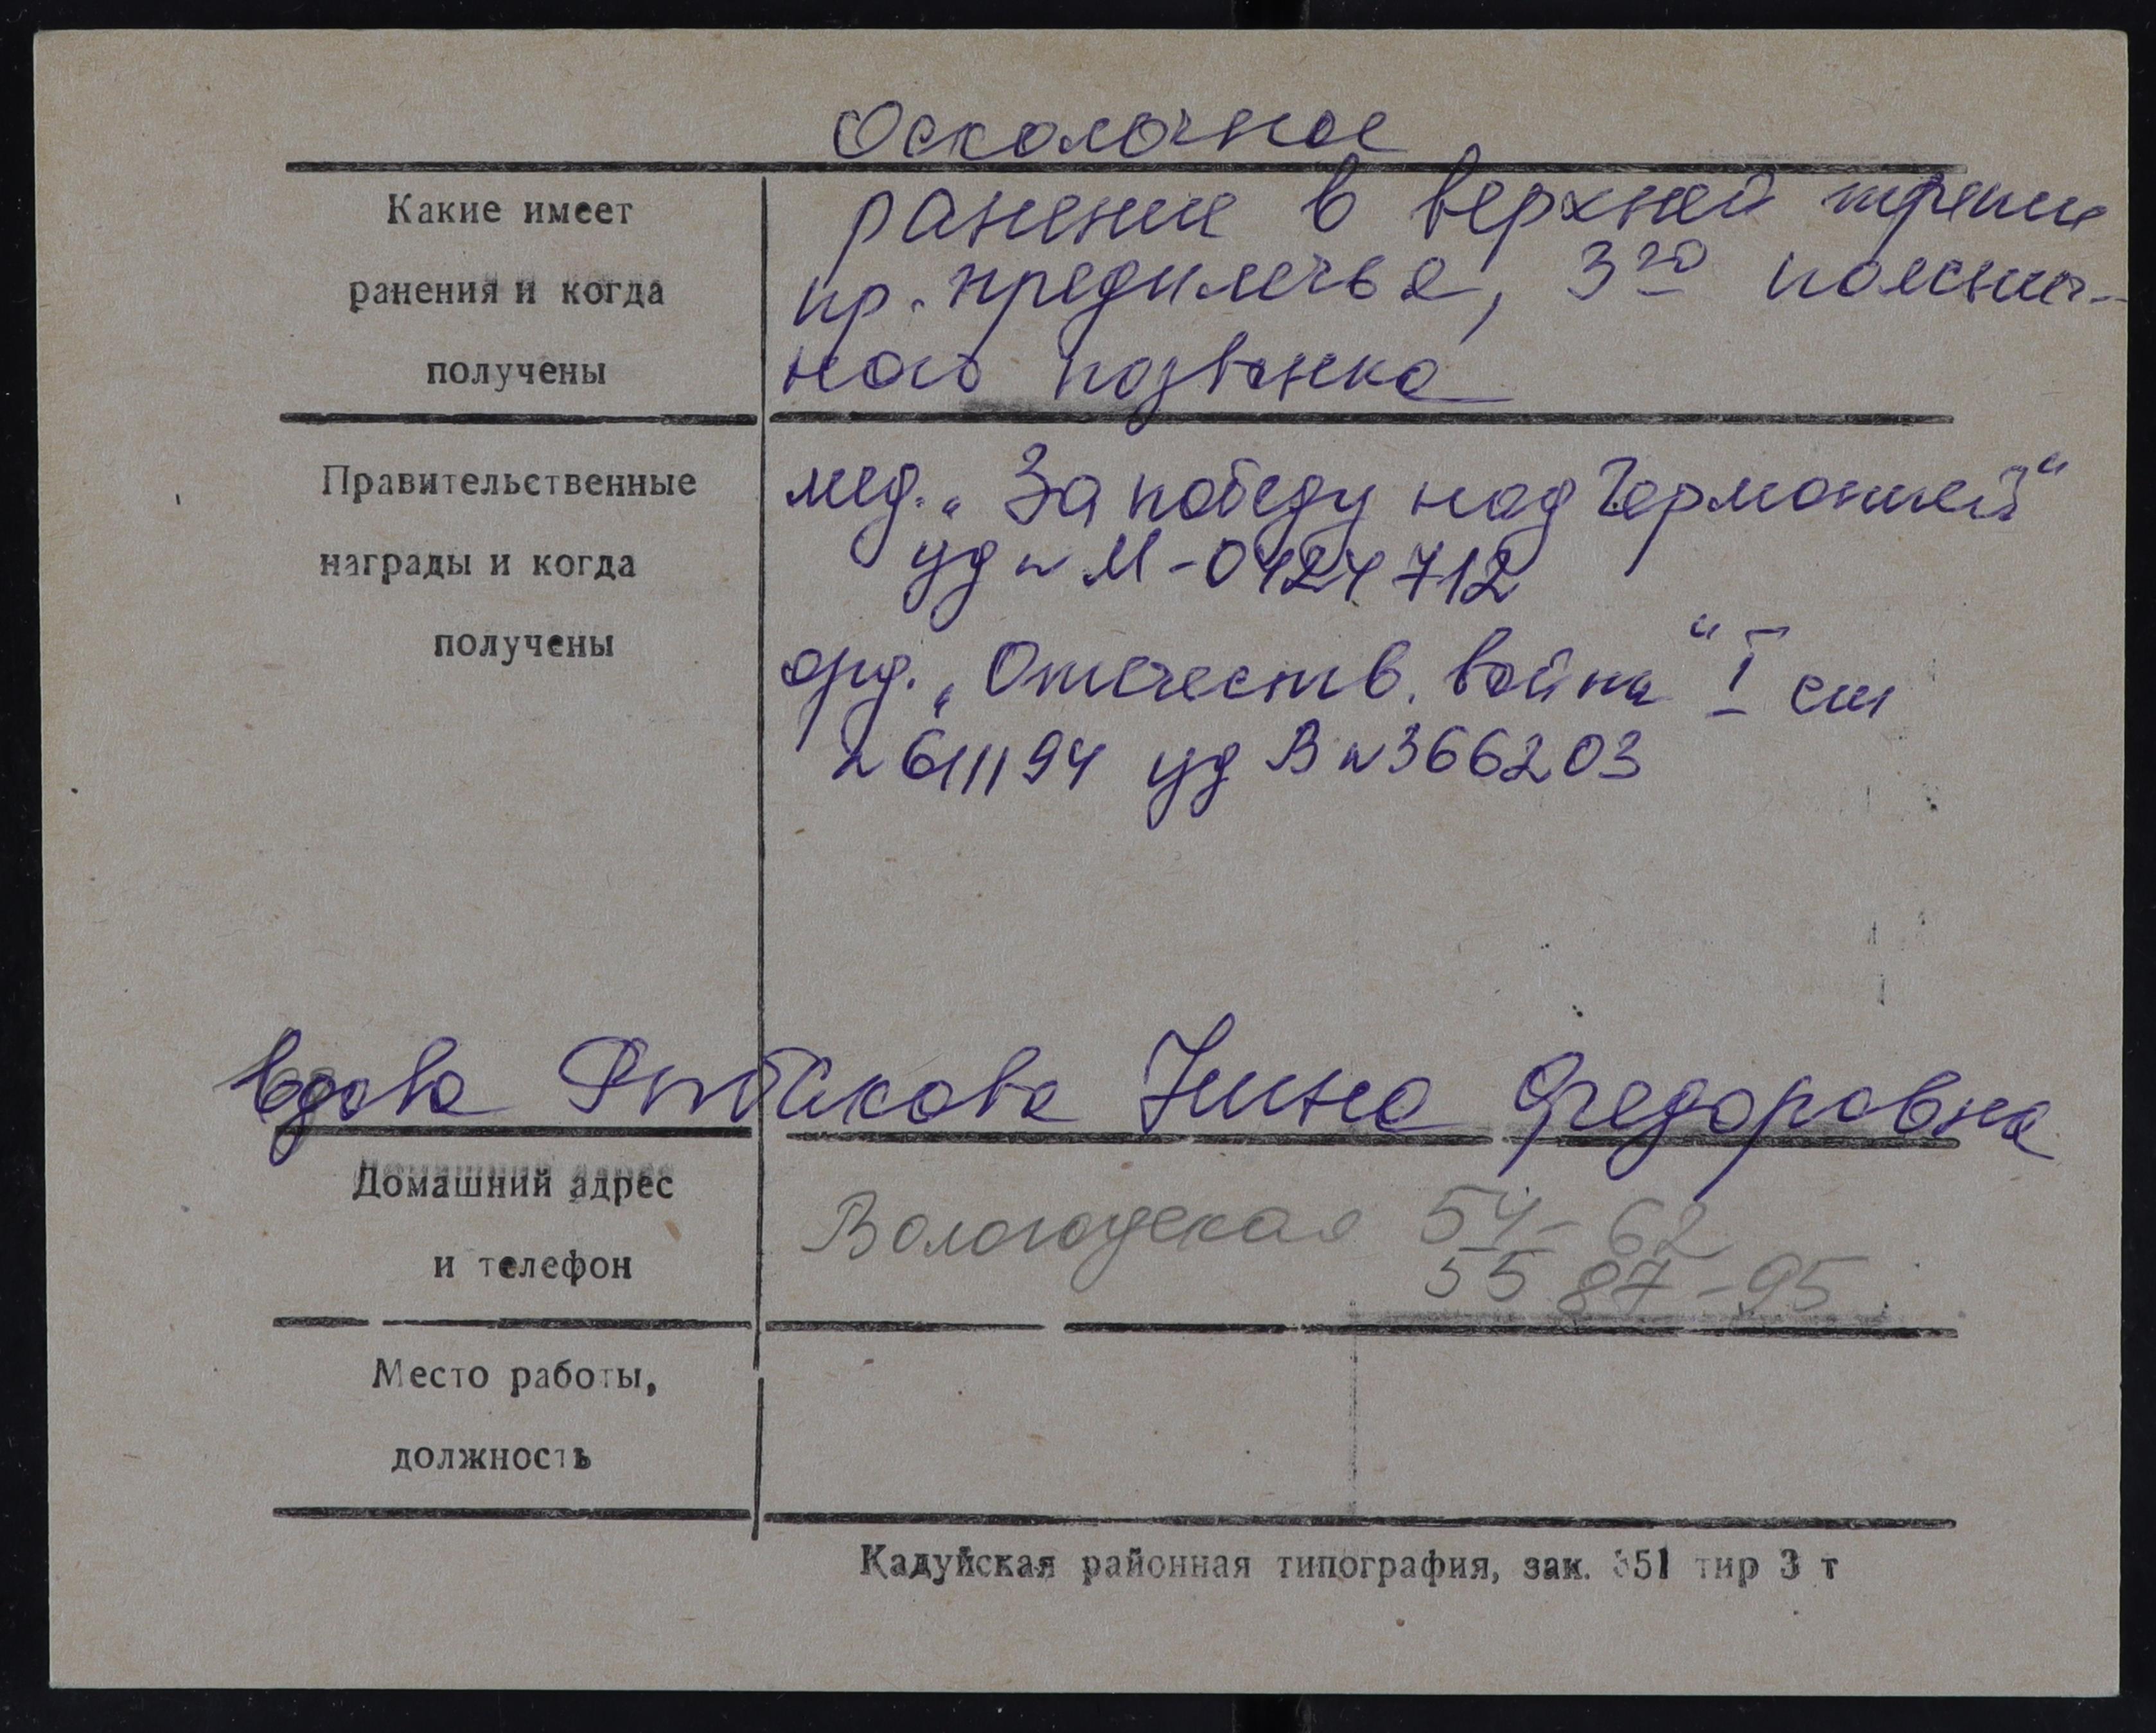 Осколочное
Какие имеет
ранения и когда
получены
ранение в верхней трети
пр. предплечья, 3го пояснич-
ного позвонка
Правительственные
награды и когда
получены
мед. „За победу над Германией“
уд № М-0424712
орд. „Отечеств. война“ I ст
№ 611194 уд В №366203
вдова Рыбакова Нина Федоровна
Домашний адрес
и телефон
Вологодская 54-62
55 87-95
Место работы,
должность
Кадуйская районная типография, зак. 351 тир 3 т